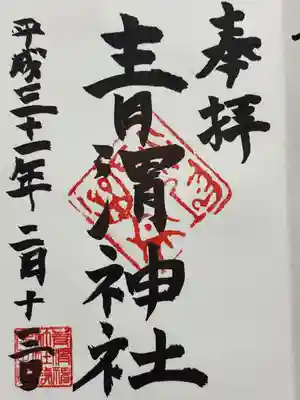 奉拝
青渭神社
平成三十一年二月十三日